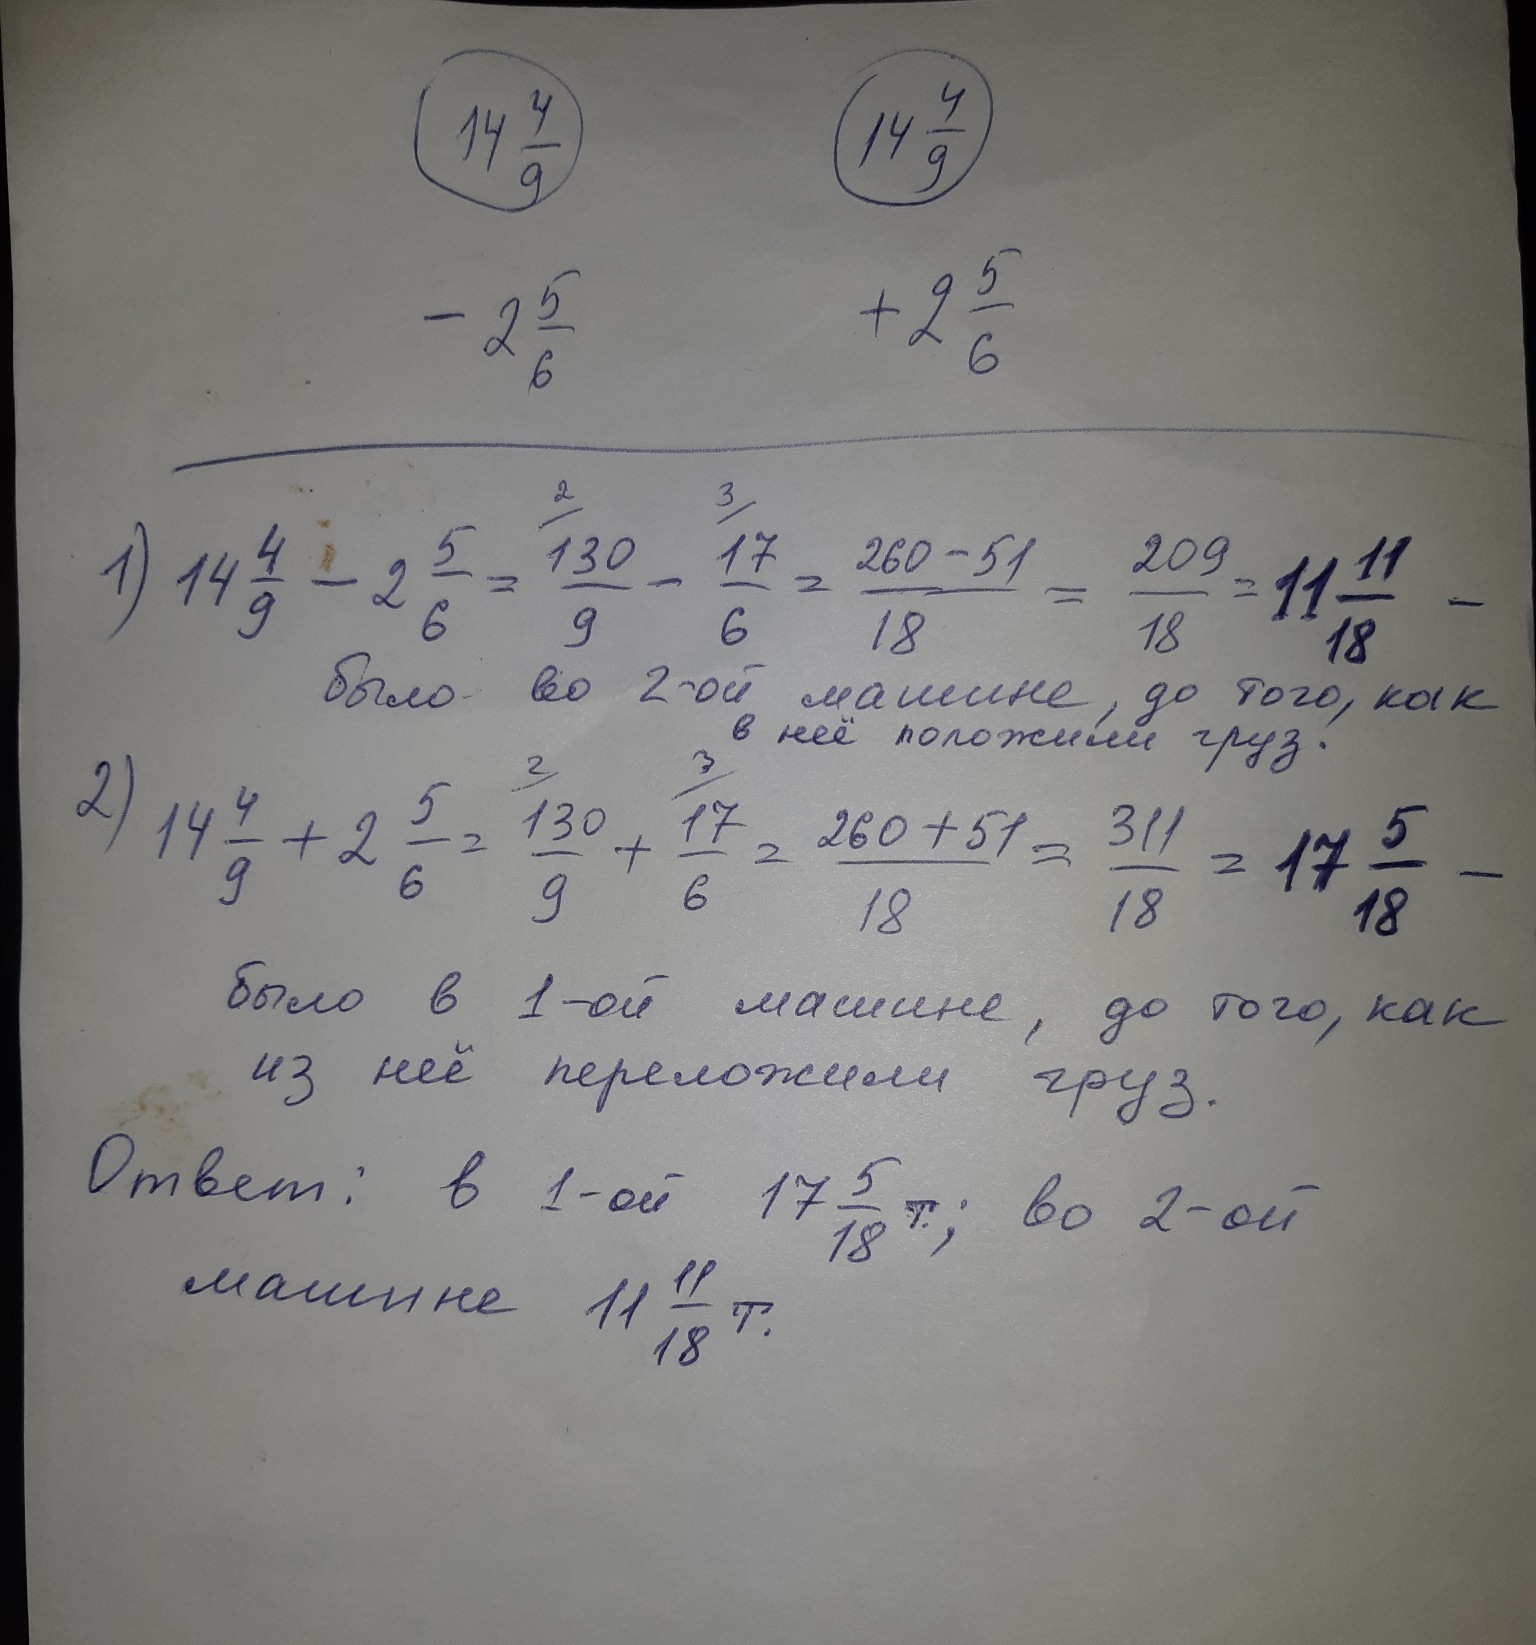 14 4/9 14 4/9
- 2 5/6 + 2 5/6
1) 14 4/9 - 2 5/6 = 2/ 130/9 - 3/ 17/6 = 260-51/18 = 209/18 = 11 11/18 -
было во 2-ой машине, до того, как
в неё положили груз.
2) 14 4/9 + 2 5/6 = 2/ 130/9 + 3/ 17/6 = 260+51/18 = 311/18 = 17 5/18 -
было в 1-ой машине, до того, как
из неё переложили груз.
Ответ: в 1-ой 17 5/18 т.; во 2-ой
машине 11 11/18 т.